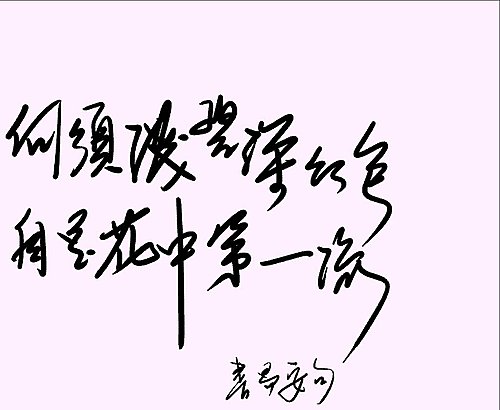 何須淺碧深红色
自是花中第一流
書易安句